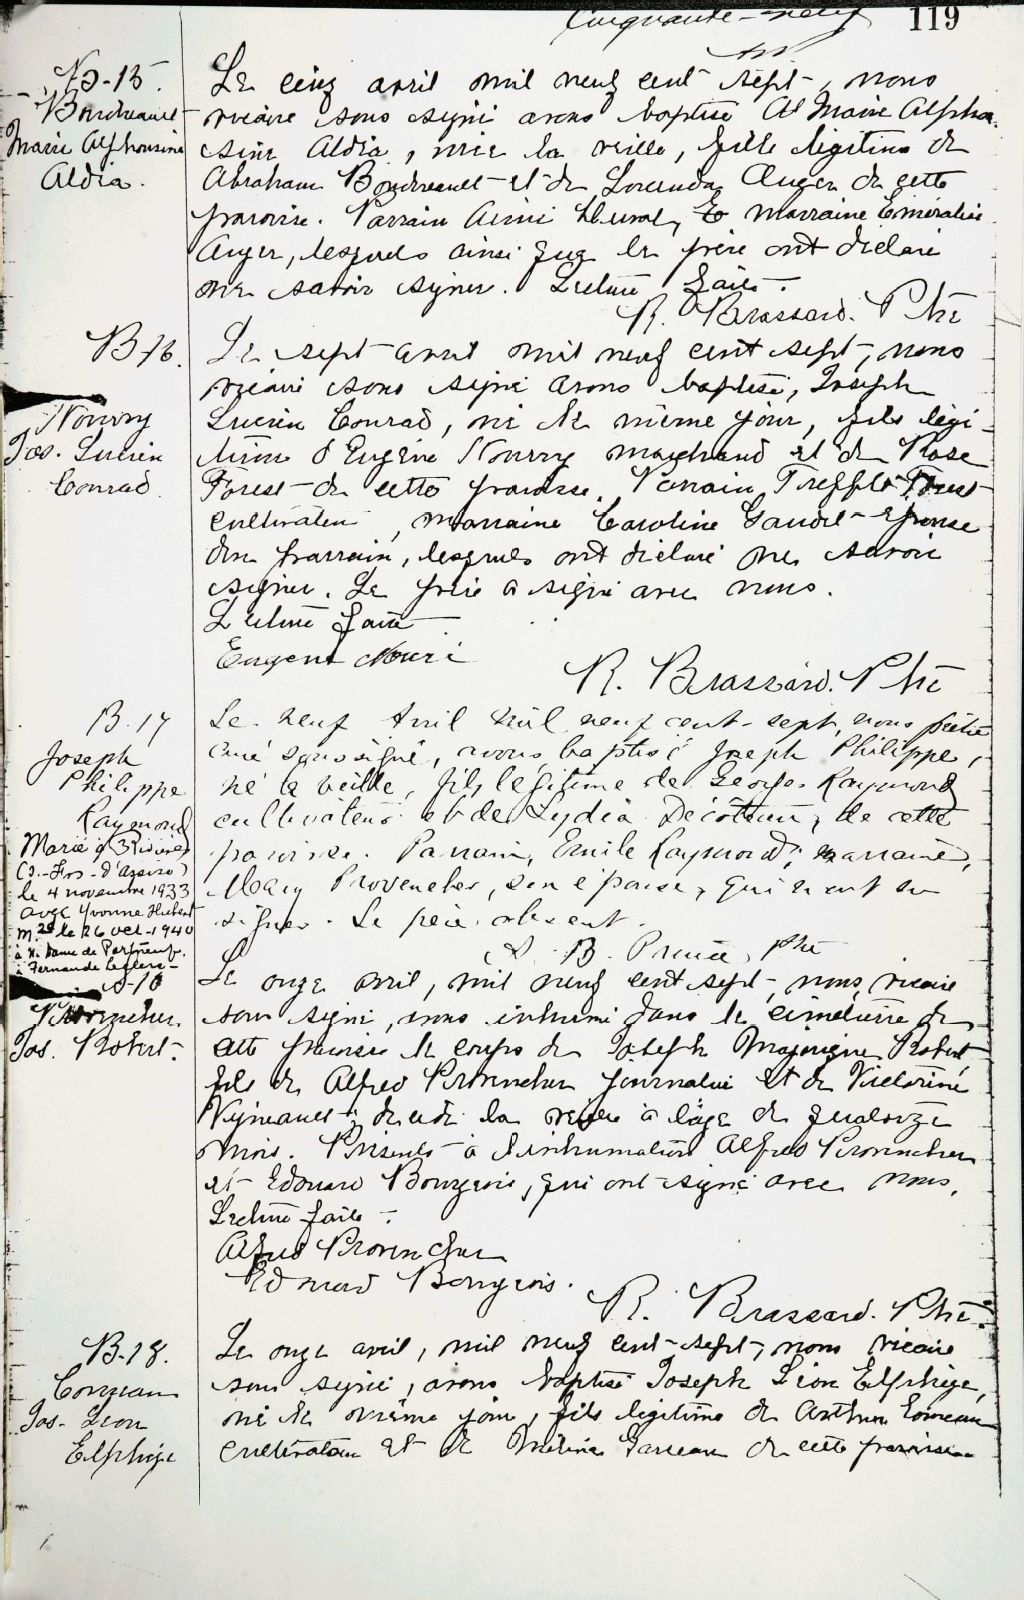 Cinquante-neuf
119
B-15.
Boudreault
Marie Alphonsine
Aldia.
Le cinq avril mil neuf cent sept, nous
vicaire sous signé avons baptisé Marie Alphon-
sine Aldia, née la veille, fille légitime de
Abraham Boudreault et de Auger de cette
paroisse. Parrain Aimé &amp; marraine
Auger, lesquels ainsi que le père ont déclaré
ne savoir signer. Lecture faite.
R. Brassard. Ptre
B-16.
Nourry
Jos. Lucien
Conrad
Le sept avril mil neuf cent sept, nous
vicaire sous signé avons baptisé, Joseph
Lucien Conrad, né le même jour, fils légi-
time d'Eugène Nourry marchand et de Rose
Forest de cette paroisse. Parrain Trefflé Forest
cultivateur, marraine Caroline Gaudet épouse
du parrain, lesquels ont déclaré ne savoir
signer. Le père a signé avec nous.
Lecture faite
Eugene Nouri
R. Brassard. Ptre
B. 17
Joseph
Philippe
Raymond
Marié à 3 Rivières
(S.-Frs-d'Assise)
le 4 novembre 1933
avec Yvonne Hubert
M. 2e le 26 oct-1940
à N. Dame de Portneuf.
à Fernande Leclerc-
Le neuf Avril mil neuf cent-sept, nous prêtre
curé soussigné, avons baptisé Joseph Philippe,
né la veille, fils légitime de Georges Raymond
cultivateur et de Lydia de cette
paroisse. Parrain, Emile Raymond; marraine,
Mary Provencher, son épouse, qui ont su
signer. Le père absent.
B. Ptre
S-10
Provencher
Jos. Robert.
Le onze avril, mil neuf cent sept, nous, vicaire
sous signé, avons inhumé dans le cimetière de
cette paroisse le corps de Joseph Robert
fils de Alfred Provencher journalier et de Victorine
Vigneault; décédé la veille à l'âge de quatorze
mois. Présents à l'inhumation Alfred Provencher
et Edouard Bourgeois, qui ont signé avec nous.
Lecture faite.
Alfred Provencher
Edouard Bourgeois.
R. Brassard. Ptre.
B-18.
Comeau
Jos. Léon
Elphège
Le onze avril, mil neuf cent sept, nous vicaire
sous signé, avons baptisé Joseph Léon Elphège,
né le même jour, fils légitime de Arthur Comeau
cultivateur et de Garceau de cette paroisse